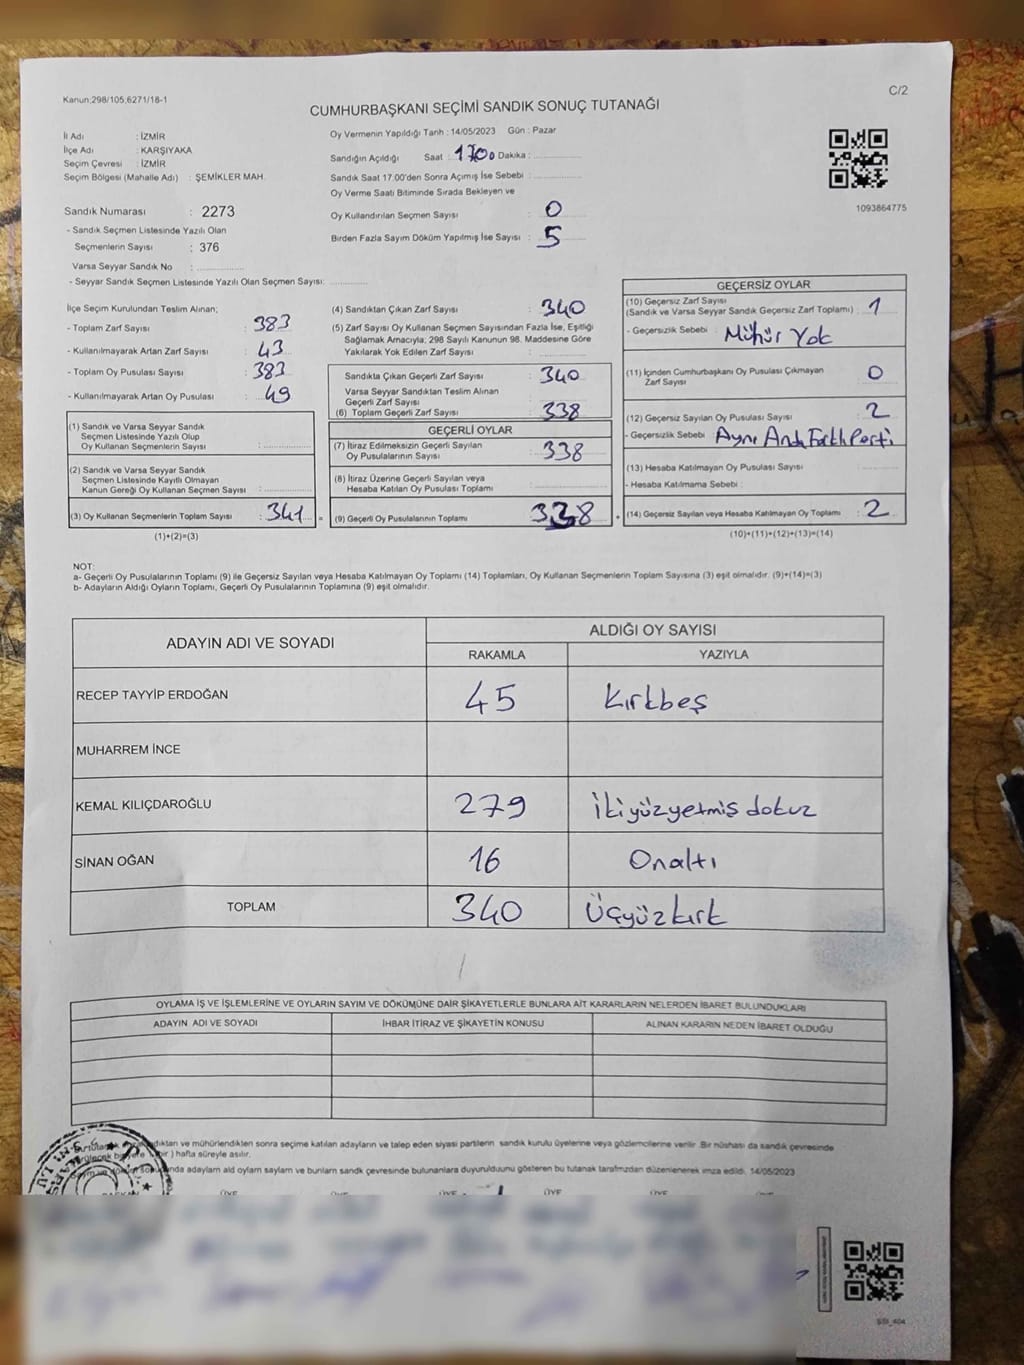 Kanun;298/105;6271/18-1
C/2
CUMHURBAŞKANI SEÇİMİ SANDIK SONUÇ TUTANAĞI
İl Adı : İZMİR
İlçe Adı : KARŞIYAKA
Seçim Çevresi : İZMİR
Seçim Bölgesi (Mahalle Adı) : ŞEMİKLER MAH.
Oy Vermenin Yapıldığı Tarih : 14/05/2023 Gün : Pazar
Sandığın Açıldığı Saat : 1700 Dakika :
Sandık Saat 17.00'den Sonra Açımış İse Sebebi :
Oy Verme Saati Bitiminde Sırada Bekleyen ve
Oy Kullandırılan Seçmen Sayısı : 0
Birden Fazla Sayım Döküm Yapılmış İse Sayısı : 5
1093864775
Sandık Numarası : 2273
- Sandık Seçmen Listesinde Yazılı Olan
Seçmenlerin Sayısı : 376
Varsa Seyyar Sandık No :
- Seyyar Sandık Seçmen Listesinde Yazılı Olan Seçmen Sayısı:
İlçe Seçim Kurulundan Teslim Alınan;
- Toplam Zarf Sayısı : 383
- Kullanılmayarak Artan Zarf Sayısı : 43
- Toplam Oy Pusulası Sayısı : 383
- Kullanılmayarak Artan Oy Pusulası : 49
(1) Sandık ve Varsa Seyyar Sandık
Seçmen Listesinde Yazılı Olup
Oy Kullanan Seçmenlerin Sayısı :
(2) Sandık ve Varsa Seyyar Sandık
Seçmen Listesinde Kayıtlı Olmayan
Kanun Gereği Oy Kullanan Seçmen Sayısı :
(3) Oy Kullanan Seçmenlerin Toplam Sayısı : 341
(1)+(2)=(3)
(4) Sandıktan Çıkan Zarf Sayısı : 340
(5) Zarf Sayısı Oy Kullanan Seçmen Sayısından Fazla İse, Eşitliği
Sağlamak Amacıyla; 298 Sayılı Kanunun 98. Maddesine Göre
Yakılarak Yok Edilen Zarf Sayısı :
Sandıkta Çıkan Geçerli Zarf Sayısı : 340
Varsa Seyyar Sandıktan Teslim Alınan
Geçerli Zarf Sayısı :
(6) Toplam Geçerli Zarf Sayısı : 338
GEÇERLİ OYLAR
(7) İtiraz Edilmeksizin Geçerli Sayılan
Oy Pusulalarının Sayısı : 338
(8) İtiraz Üzerine Geçerli Sayılan veya
Hesaba Katılan Oy Pusulası Toplamı :
(9) Geçerli Oy Pusulalarının Toplamı : 338
GEÇERSİZ OYLAR
(10) Geçersiz Zarf Sayısı
(Sandık ve Varsa Seyyar Sandık Geçersiz Zarf Toplamı) : 1
- Geçersizlik Sebebi : Mühür Yok
(11) İçinden Cumhurbaşkanı Oy Pusulası Çıkmayan
Zarf Sayısı : 0
(12) Geçersiz Sayılan Oy Pusulası Sayısı : 2
- Geçersizlik Sebebi : Aynı Anda Farklı Parti
(13) Hesaba Katılmayan Oy Pusulası Sayısı :
- Hesaba Katılmama Sebebi :
(14) Geçersiz Sayılan veya Hesaba Katılmayan Oy Toplamı : 2
(10)+(11)+(12)+(13)=(14)
NOT:
a- Geçerli Oy Pusulalarının Toplamı (9) ile Geçersiz Sayılan veya Hesaba Katılmayan Oy Toplamı (14) Toplamları, Oy Kullanan Seçmenlerin Toplam Sayısına (3) eşit olmalıdır. (9)+(14)=(3)
b- Adayların Aldığı Oyların Toplamı, Geçerli Oy Pusulalarının Toplamına (9) eşit olmalıdır.
ADAYIN ADI VE SOYADI ALDIĞI OY SAYISI
RAKAMLA YAZIYLA
RECEP TAYYİP ERDOĞAN 45 Kırkbeş
MUHARREM İNCE
KEMAL KILIÇDAROĞLU 279 İkiyüzyetmiş dokuz
SİNAN OĞAN 16 Onaltı
TOPLAM 340 Üçyüzkırk
OYLAMA İŞ VE İŞLEMLERİNE VE OYLARIN SAYIM VE DÖKÜMÜNE DAİR ŞİKAYETLERLE BUNLARA AİT KARARLARIN NELERDEN İBARET BULUNDUKLARI
ADAYIN ADI VE SOYADI İHBAR İTİRAZ VE ŞİKAYETİN KONUSU ALINAN KARARIN NEDEN İBARET OLDUĞU
ve mühürlendikten sonra seçime katılan adayların ve talep eden siyasi partilerin sandık kurulu üyelerine veya gözlemcilerine verilir. Bir nüshası da sandık çevresinde
) hafta süreyle asılır.
adayların ald oyların sayların ve bunların sandk çevresinde bulunanlara duyurulduunu gösteren bu tutanak tarafımızdan düzenlenerek imza edildi. 14/05/2023
ÜYE ÜYE ÜYE ÜYE ÜYE ÜYE